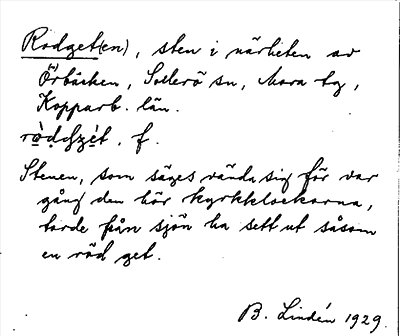 Rodget(en), sten i närheten av
Örbäcken, Sollerö sn, Mora tg,
Kopparb. län.
f.
Stenen, som säges vända sig för var
gång den hör kyrkklockorna,
torde från sjön ha sett ut såsom
en röd get.
B. Lindén 1929.